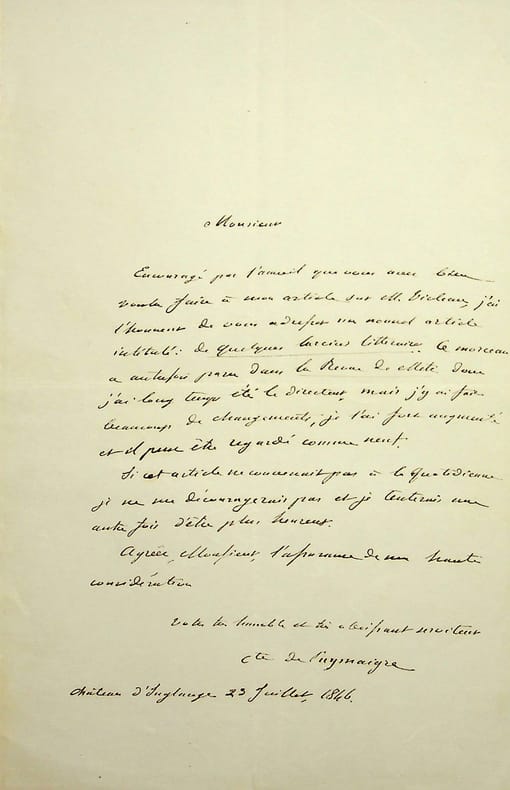 Monsieur
Encouragé par l'accueil que vous avez bien
voulu faire à mon article sur M. Violeau, j'ai
l'honneur de vous adresser un nouvel article
intitulé: de quelques larcins littéraires. Ce morceau
a autrefois paru dans la Revue de Metz dont
j'ai long temps été le directeur, mais j'y ai fait
beaucoup de changements, je l'ai fort augmenté
et il peut être regardé comme neuf.
Si cet article ne convenait pas à la quotidienne
je ne me découragerais pas et je tenterais une
autre fois d'être plus heureux.
Agréez, Monsieur, l'assurance de ma haute
considération
votre très humble et très obéissant serviteur
Cte de Puymaigre
château d'Inglange 23 Juillet, 1846.